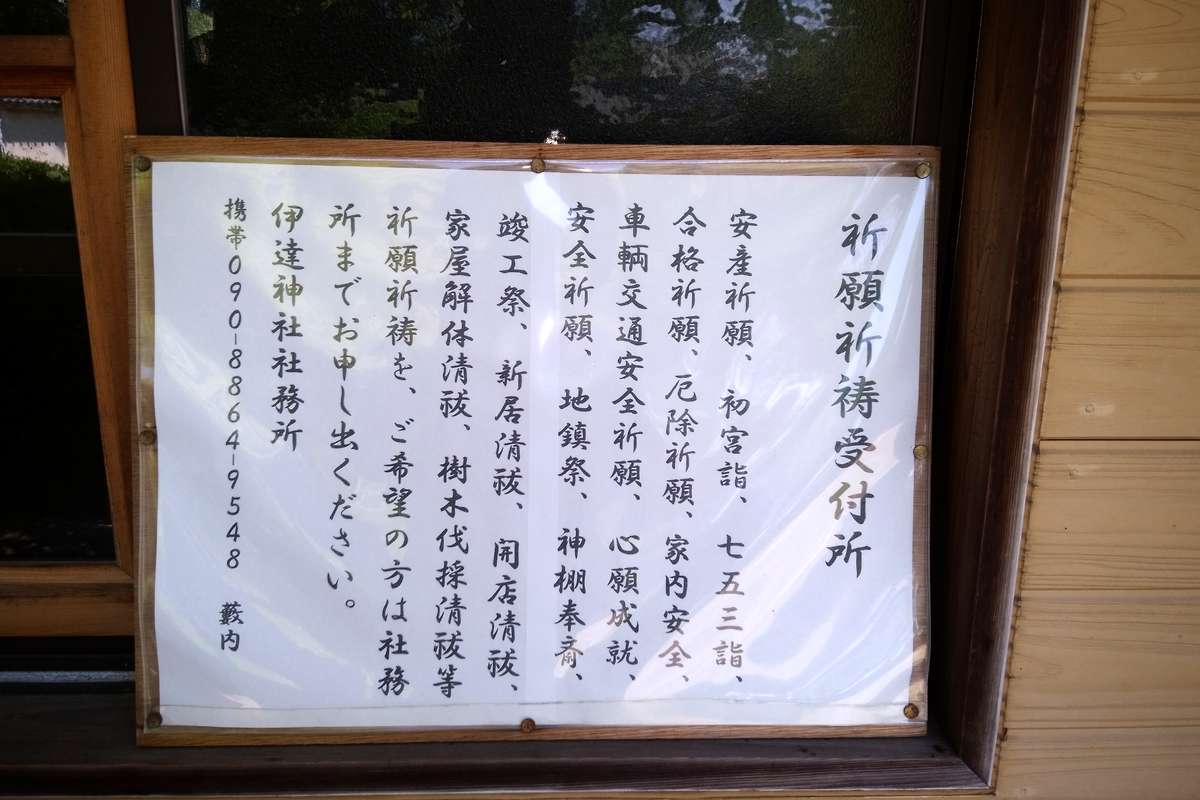 祈願祈祷受付所
安産祈願、初宮詣、七五三詣、
合格祈願、厄除祈願、家内安全、
車輌交通安全祈願、心願成就、
安全祈願、地鎮祭、神棚奉斎、
竣工祭、新居清祓、開店清祓、
家屋解体清祓、樹木伐採清祓等
祈願祈祷を、ご希望の方は社務
所までお申し出ください。
伊達神社社務所
携帯090-8864-9548 藪内